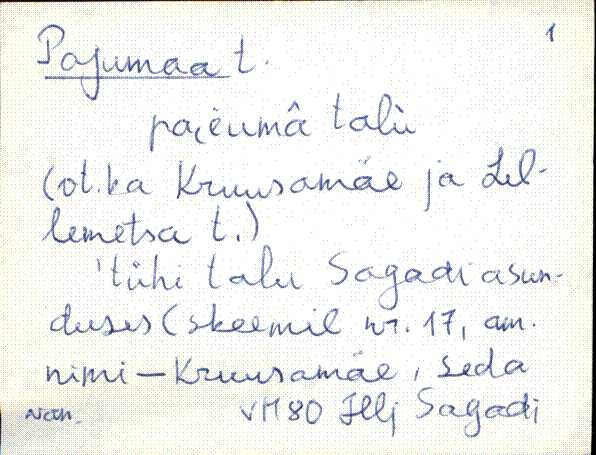 1
Pajumaa t.
pai̯ĕumâ talù
(ot. ka Kruusamäe ja Lil-
lemetsa t.)
'tühi talu Sagadi asun-
duses (skeemil nr. 17, am.
nimi – Kruusamäe, seda
VM 80 Hlj Sagadi